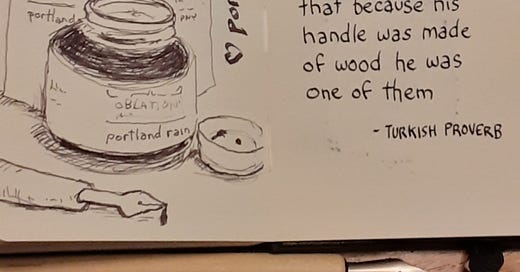 portland
OBLATION
portland rain
that because his
handle was made
of wood he was
one of them
- TURKISH PROVERB